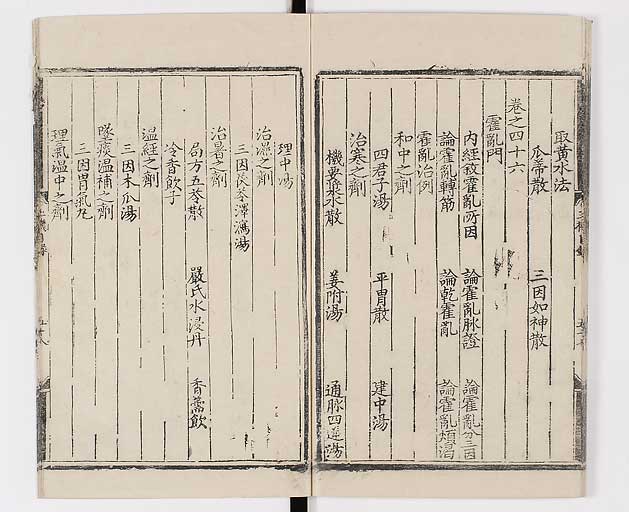 取黄水法
瓜蒂散 三因如神散
卷之四十六
霍亂門
内經致霍亂所因 論霍亂脉證 論霍亂分三因
論霍亂轉筋 論乾霍亂 論霍亂煩渴
霍亂治例
和中之劑
四君子湯 平胃散 建中湯
治寒之劑
機要漿水散 姜附湯 通脉四逆湯
理中湯
治濕之劑
三因茯苓澤瀉湯
治暑之劑
局方五苓散 嚴氏水浸丹 香薷飲
冷香飲子
温經之劑
三因木瓜湯
墜痰温補之劑
三因胃氣丸
理氣温中之劑